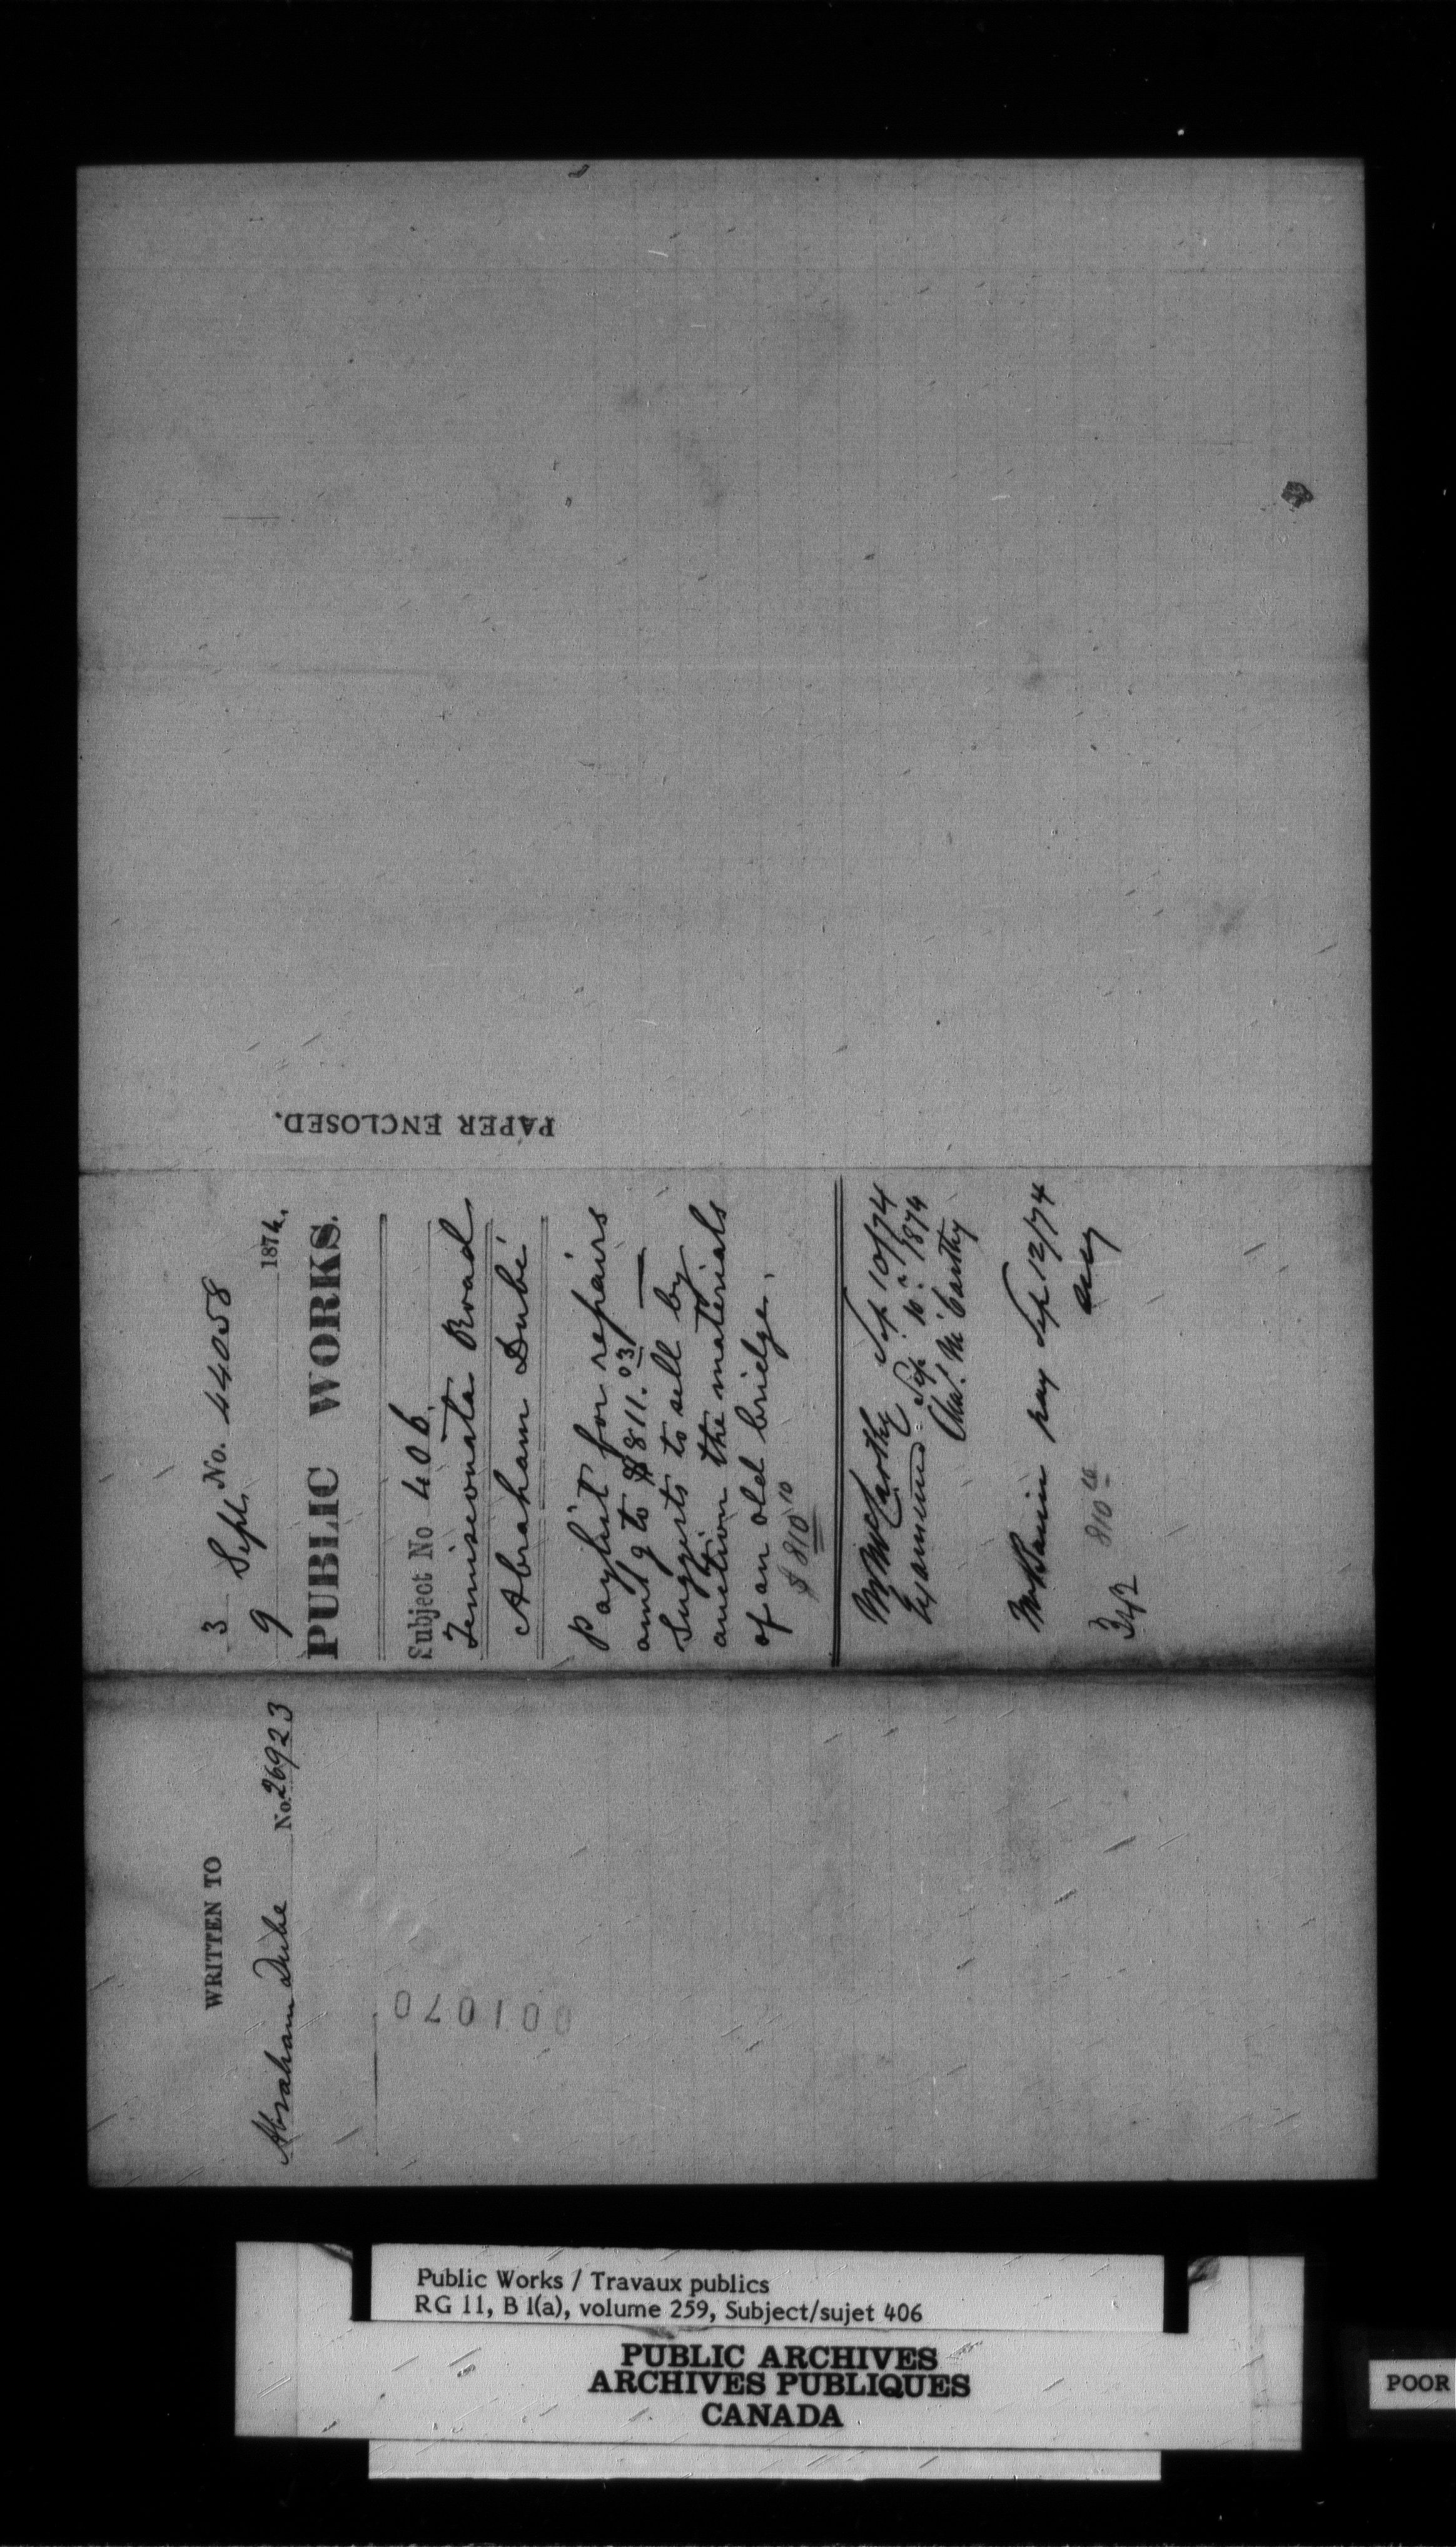 PAPER ENCLOSED.
3 Sept. No. 44058
9 1874.
PUBLIC WORKS.
Subject No 406.
Temiscouata Road
Abraham Dubé
Paylist for repairs
amt g to $811.03 —
Suggests to sell by
auction the materials
of an old bridge.
$ 810 10
Mr McCarthy Sep 10/74
Examined Sep 10. 1874
Chas. McCarthy
Mr Bain pay Sep 12/74
810 10
WRITTEN TO
Abraham Dube No. 26923
001070
Public Works / Travaux publics
RG 11, B 1(a), volume 259, Subject/sujet 406
PUBLIC ARCHIVES
ARCHIVES PUBLIQUES
CANADA
POOR